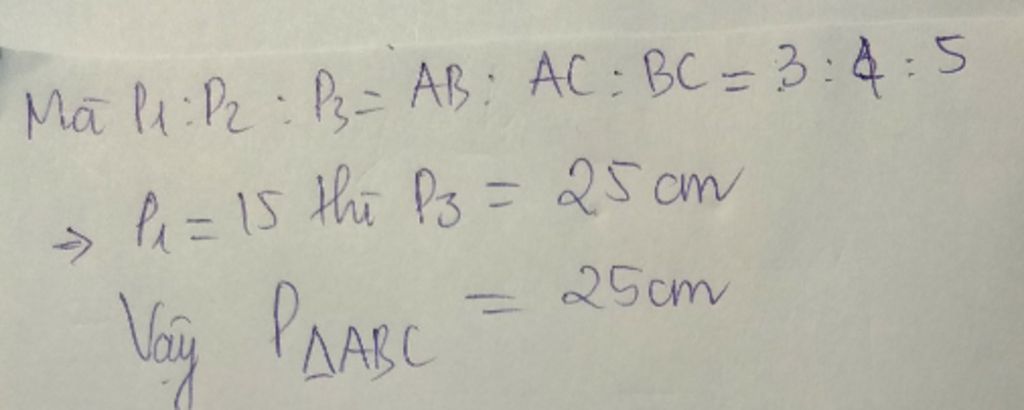 Mà P1 : P2 : P3 = AB : AC : BC = 3 : 4 : 5
⇒ P1 = 15 thì P3 = 25 cm
Vậy PΔABC = 25cm